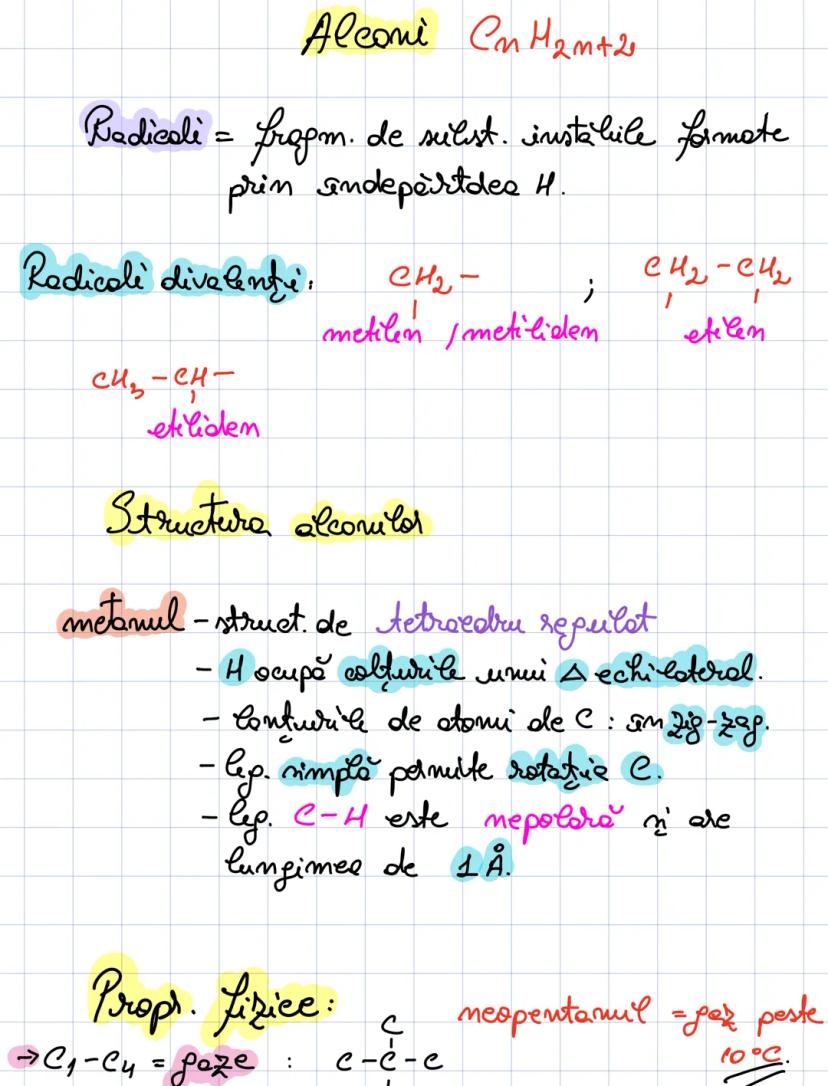 Alcani CnH2n+2
Radicali = fragm. de subst. instabile formate
prin îndepărtdea H.
Radicali divalenți: CH2 – ; CH2 – CH2
metilen / metiliden etilen
CH3 – CH –
etiliden
Structura alcanilor
metanul – struct. de tetraedru regulat
– H ocupă colțurile unui Δ echilateral.
– lanțurile de atomi de C : în zig-zag.
– leg. simplă permite rotația C.
– leg. C–H este nepolară și are
lungimea de 1 Å.
Propr. fizice:
C neopentanul = gaz peste
→ C1–C4 = gaze : C–C–C 10°C.